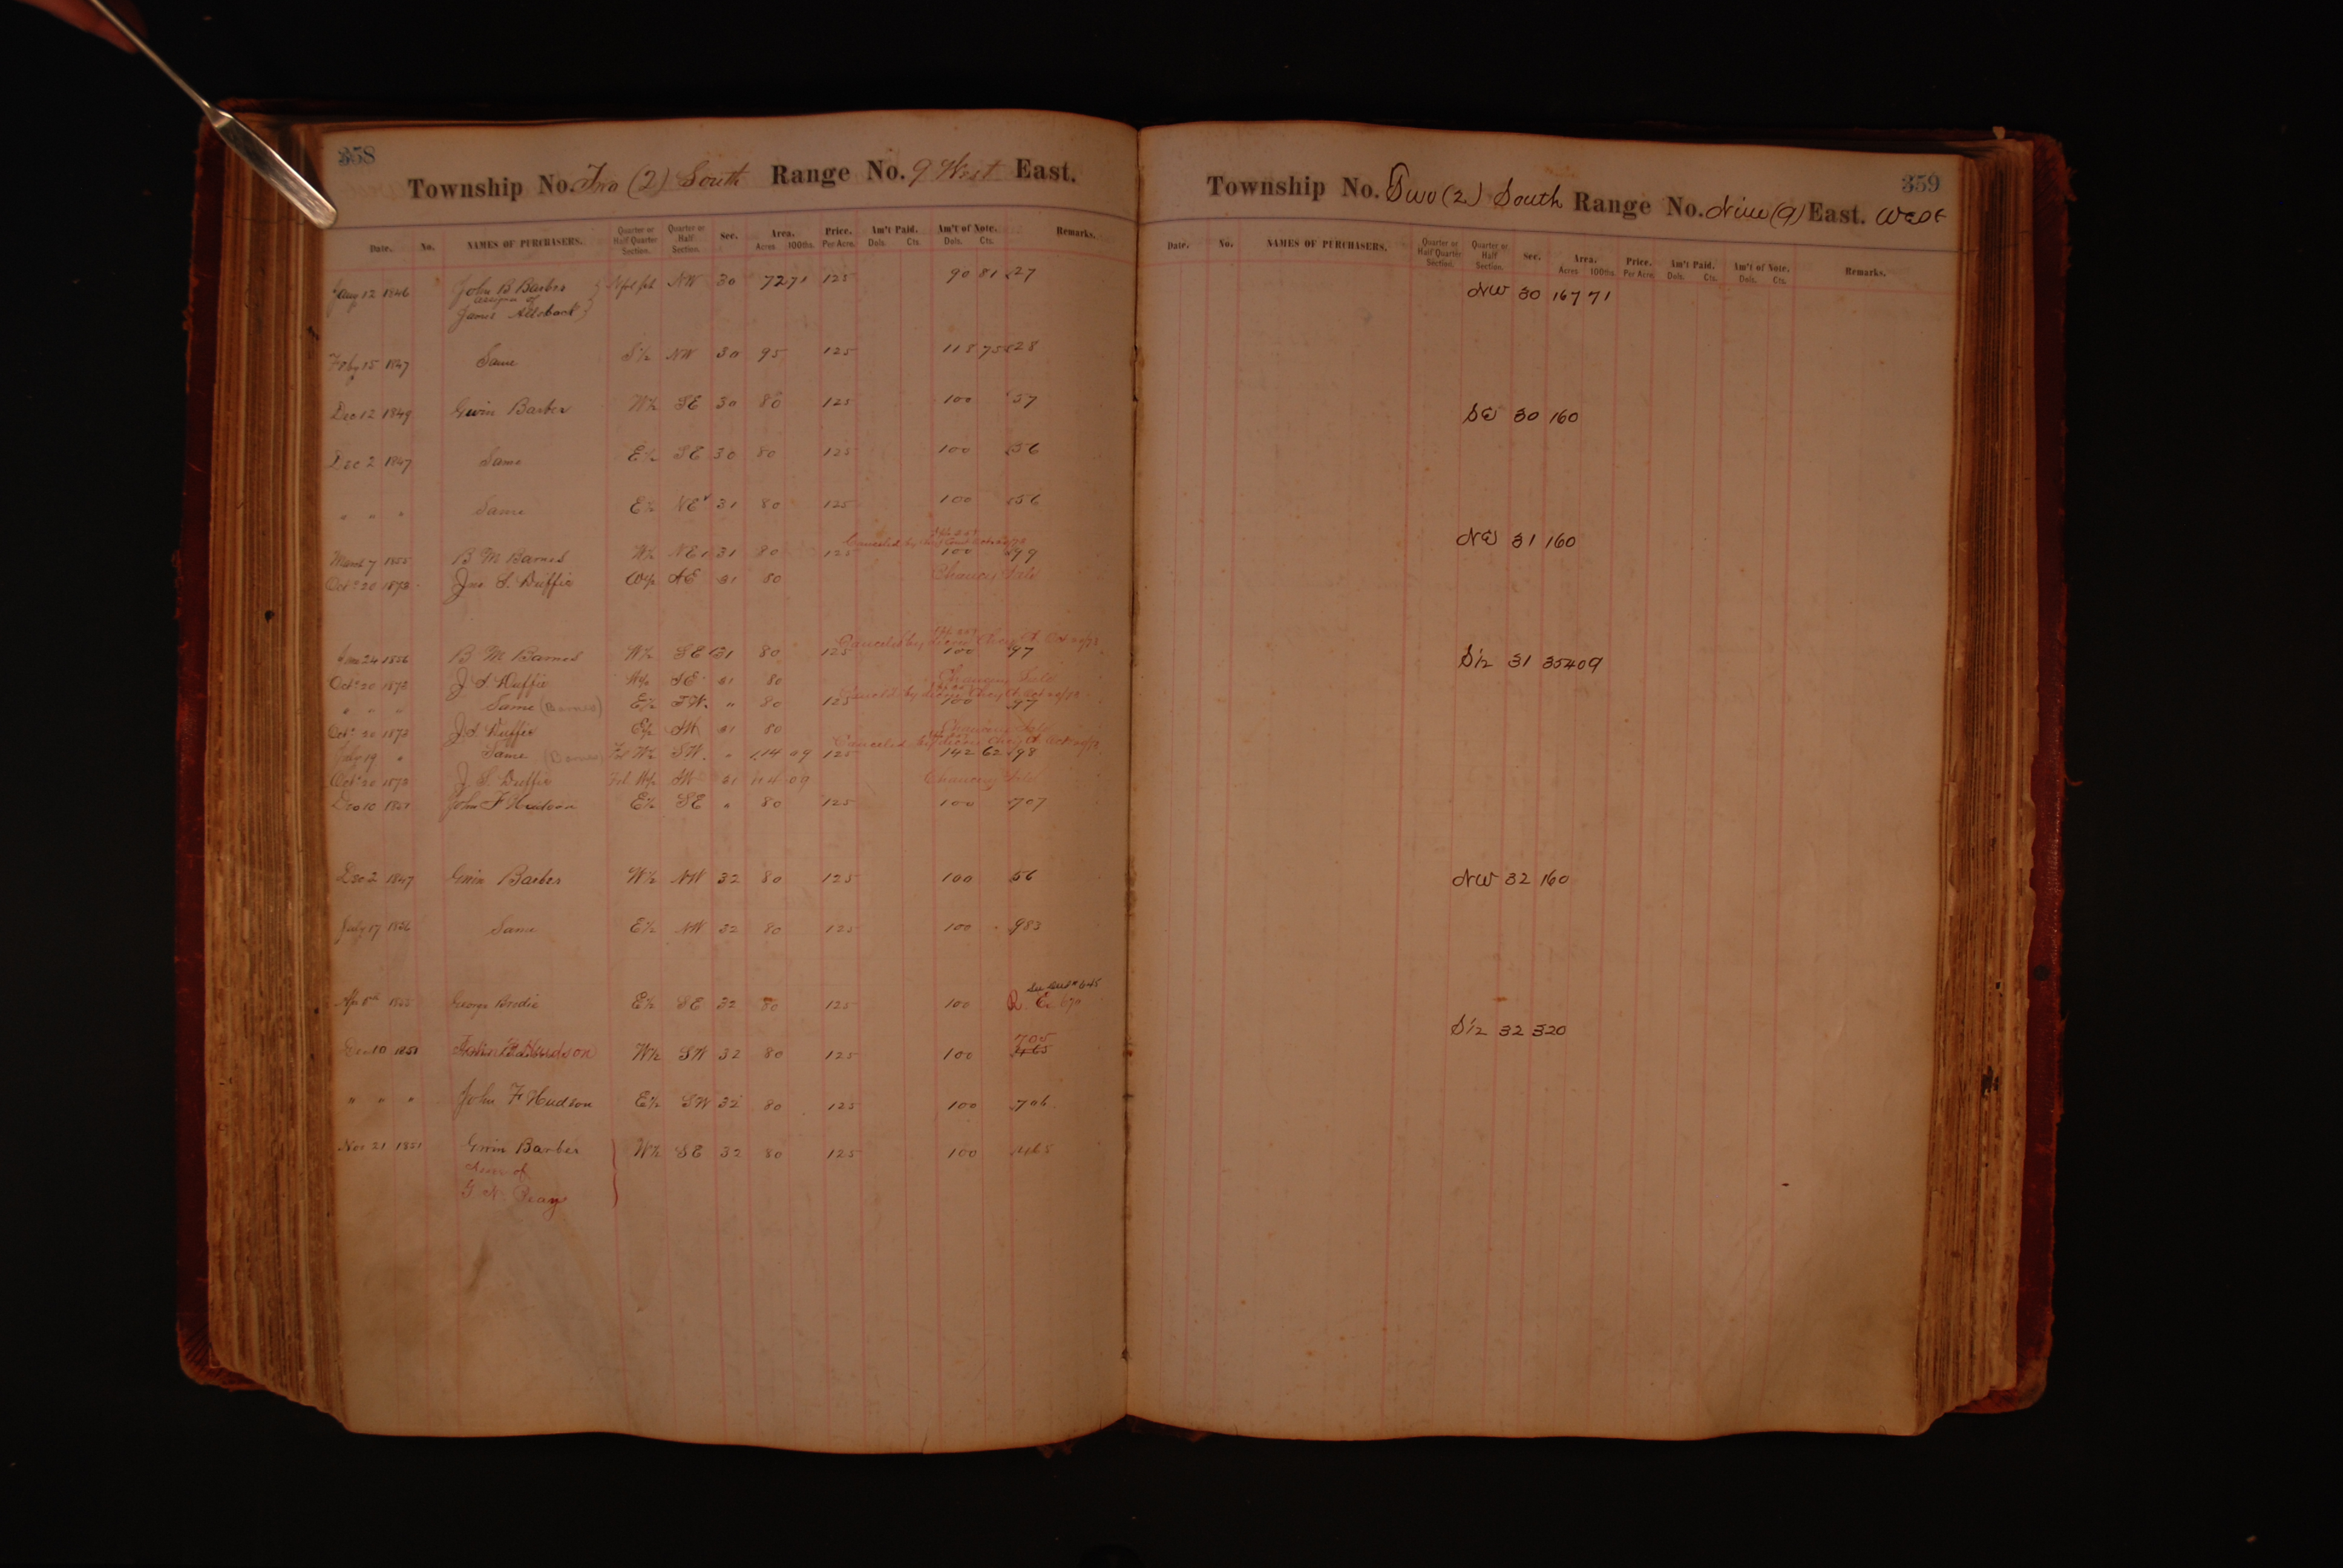 358
Township No. Two (2) South Range No. 9 West East.
Date. No. NAMES OF PURCHASERS. Quarter or Half Quarter Section. Quarter or Half Section. Sec. Area. Acres 100ths. Price. Per Acre. Am't Paid. Dols. Cts. Am't of Note. Dols. Cts. Remarks.
12 1846 John B Barber NW 30 72 71 125 90 81 27
assignee of
James
Feby 15 1847 Same S½ NW 30 95 125 118 75 28
Dec 12 1849 Gwin Barber W½ SE 30 80 125 100 57
Dec 2 1847 Same E½ SE 30 80 125 100 56
" " " Same E½ NE 31 80 125 100 56
Canceled by
March 7 1855 B M Barnes W½ NE 31 80 125 100 99
Oct 20 1873 Jno. S. Duffie W½ NE 31 80 Chancery Sale
Canceled by decree Chcy Ct. Oct 20/73
24 1856 B M Barnes W½ SE 31 80 125 100 97
Oct 20 1873 J S. Duffie W½ SE 31 80 Chancery Sale
Canceled by decree Chcy Ct Oct 20/73
" " " Same (Barnes) E½ SW. " 80 125 100 97
Oct 20 1873 J. S. Duffie E½ SW 31 80 Chancery Sale
Canceled by decree Chcy Ct Oct 20/73
19 " Same (Barnes) Frl W½ SW. " 114 09 125 142 62 98
Oct 20 1873 J. S. Duffie Frl W½ SW 31 114 09 Chancery Sale
Dec 10 John F Hudson E½ SE " 80 125 100 707
Dec 2 1847 Gwin Barber W½ NW 32 80 125 100 56
July 17 Same E½ NW 32 80 125 100 983
George Brodie E½ SE 32 80 125 100 R. E.
Dec 10 John F. Hudson W½ SW 32 80 125 100 705
" " " John F Hudson E½ SW 32 80 125 100 706
Nov 21 1851 Gwin Barber W½ SE 32 80 125 100 465
of
359
Township No. Two (2) South Range No. Nine (9) East. West
Date. No. NAMES OF PURCHASERS. Quarter or Half Quarter Section. Quarter or Half Section. Sec. Area. Acres 100ths. Price. Per Acre. Am't Paid. Dols. Cts. Am't of Note. Dols. Cts. Remarks.
NW 30 167 71
SE 30 160
NE 31 160
S½ 31 354 09
NW 32 160
S½ 32 320